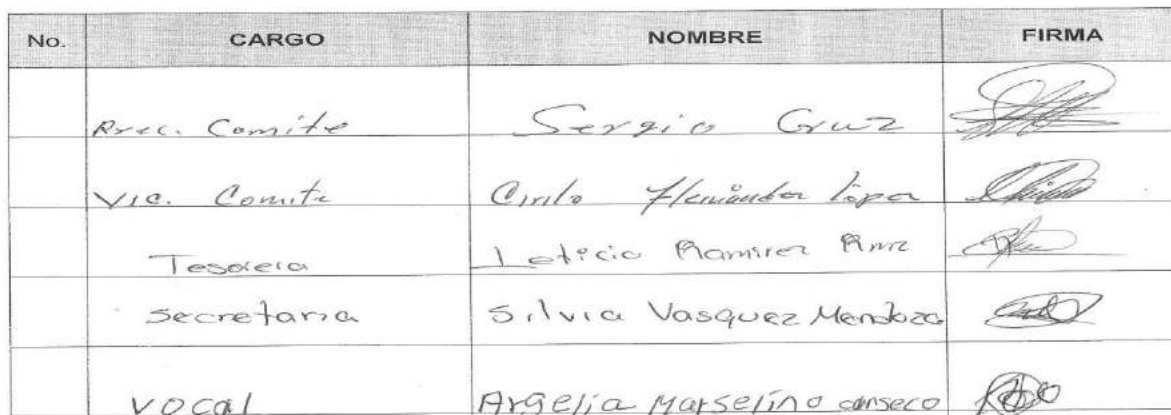 No. CARGO NOMBRE FIRMA
Prec. Comite Sergio Cruz
Vic. Comite Cirilo Hernández López
Tesorera Leticia Ramirez
Secretaria Silvia Vasquez Mendoza
Vocal Argelia Marselino canseco